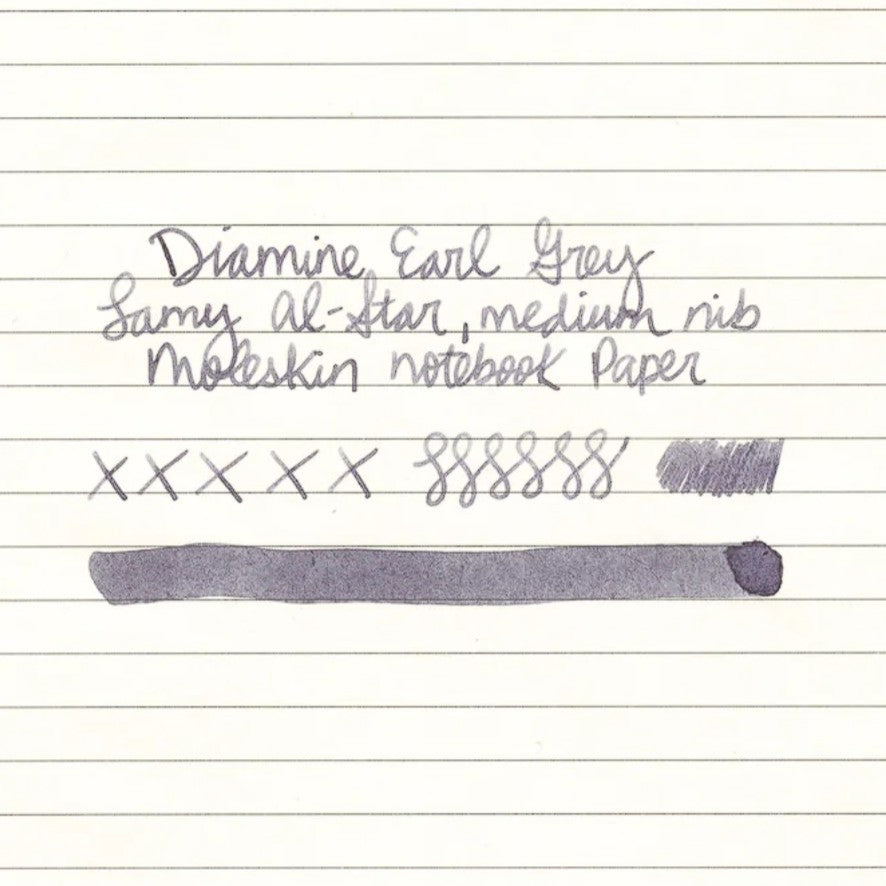 Diamine Earl Grey
Lamy Al-Star, medium nib
Moleskin notebook Paper
X X X X X